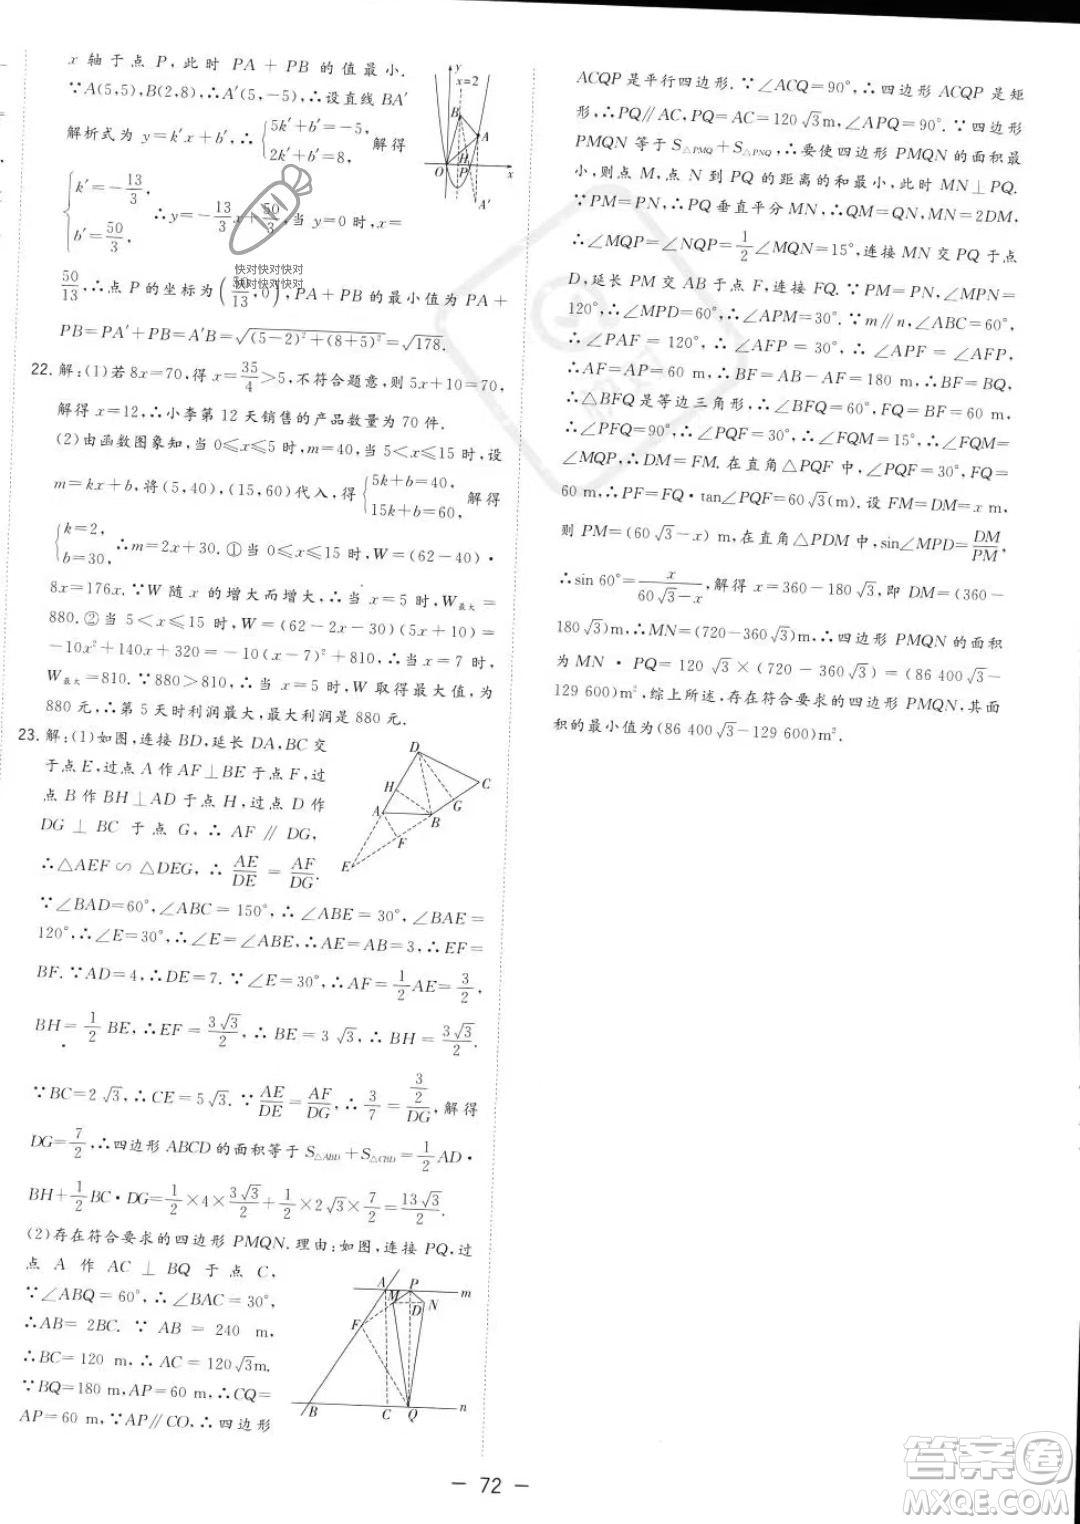 x 轴于点 P, 此时 PA+PB 的值最小.
∵A(5,5),B(2,8),∴A′(5,-5),∴设直线 BA′
解析式为 y=k′x+b′,∴{5k′+b′=-5, 2k′+b′=8, 解得
{k′=-13/3, b′=50/3. ∴y=-13/3x+50/3,当 y=0 时,x=
50/13,∴点 P 的坐标为(50/13,0),PA+PB 的最小值为 PA+
PB=PA′+PB=BA′=√(5-2)²+(8+5)²=√178.
22. 解:(1)若 8x=70,得 x=35/4>5,不符合题意,则 5x+10=70,
解得 x=12,∴小李第 12 天销售的产品数量为 70 件.
(2)由函数图象知,当 0≤x≤5 时,m=40,当 5<x≤15 时,设
m=kx+b,将(5,40),(15,60)代入,得{5k+b=40, 15k+b=60, 解得
{k=2, b=30, ∴m=2x+30.①当 0≤x≤15 时,W=(62-40)·
8x=176x.∵W 随 x 的增大而增大,∴当 x=5 时,W最大=
880.②当 5<x≤15 时,W=(62-2x-30)(5x+10)=
-10x²+140x+320=-10(x-7)²+810,∴当 x=7 时,
W最大=810.∵880>810,∴当 x=5 时,W 取得最大值,为
880 元.∴第 5 天时利润最大,最大利润是 880 元.
23. 解:(1)如图,连接 BD,延长 DA,BC 交
于点 E,过点 A 作 AF⊥BE 于点 F,过
点 B 作 BH⊥AD 于点 H,过点 D 作
DG⊥BC 于点 G,∴AF∥DG,
∴△AEF∽△DEG,∴AE/DE=AF/DG.
∵∠BAD=60°,∠ABC=150°,∴∠ABE=30°,∠BAE=
120°,∴∠E=30°,∴∠E=∠ABE,∴AE=AB=3,∴EF=
BF.∵AD=4,∴DE=7.∵∠E=30°,∴AF=1/2AE=3/2,
BH=1/2BE,∴EF=3√3/2,∴BE=3√3,∴BH=3√3/2.
∵BC=2√3,∴CE=5√3.∵AE/DE=AF/DG,∴3/7=(3/2)/DG,解得
DG=7/2,∴四边形 ABCD 的面积等于 S△ABD+S△CBD=1/2AD·
BH+1/2BC·DG=1/2×4×3√3/2+1/2×2√3×7/2=13√3/2.
(2)存在符合要求的四边形 PMQN.理由:如图,连接 PQ,过
点 A 作 AC⊥BQ 于点 C,
∵∠ABQ=60°,∴∠BAC=30°,
∴AB=2BC.∵AB=240 m,
∴BC=120 m,∴AC=120√3m.
∵BQ=180 m,AP=60 m,∴CQ=
AP=60 m,∵AP∥CO,∴四边形
ACQP 是平行四边形.∵∠ACQ=90°,∴四边形 ACQP 是矩
形,∴PQ∥AC,PQ=AC=120√3m,∠APQ=90°.∵四边形
PMQN 等于 S△PMQ+S△PNQ,∴要使四边形 PMQN 的面积最
小,则点 M,点 N 到 PQ 的距离的和最小,此时 MN⊥PQ.
∵PM=PN,∴PQ 垂直平分 MN,∴QM=QN,MN=2DM,
∴∠MQP=∠NQP=1/2∠MQN=15°,连接 MN 交 PQ 于点
D,延长 PM 交 AB 于点 F,连接 FQ.∵PM=PN,∠MPN=
120°,∴∠MPD=60°,∴∠APM=30°.∵m∥n,∠ABQ=60°,
∴∠PAF=120°,∴∠AFP=30°,∴∠APF=∠AFP,
∴AF=AP=60 m,∴BF=AB-AF=180 m,∴BF=BQ,
∴△BFQ 是等边三角形,∴∠BFQ=60°,FQ=BF=60 m,
∴∠PFQ=90°,∴∠PQF=30°,∴∠FQM=15°,∴∠FQM=
∠MQP,∴DM=FM.在直角△PQF 中,∠PQF=30°,FQ=
60 m,∴PF=FQ·tan∠PQF=60√3(m).设 FM=DM=x m,
则 PM=(60√3-x)m,在直角△PDM 中,sin∠MPD=DM/PM,
∴sin 60°=x/(60√3-x),解得 x=360-180√3,即 DM=(360-
180√3)m,∴MN=(720-360√3)m,∴四边形 PMQN 的面积
为 MN·PQ=120√3×(720-360√3)=(86 400√3-
129 600)m²,综上所述,存在符合要求的四边形 PMQN,其面
积的最小值为(86 400√3-129 600)m².
y
x=2
B
A
O
H
P
x
A′
D
H
C
A
G
B
F
E
A
P
m
M
D
N
F
B
C
Q
n
快对快对快对
快对快对快对
- 72 -
答案圈
MXQE.COM